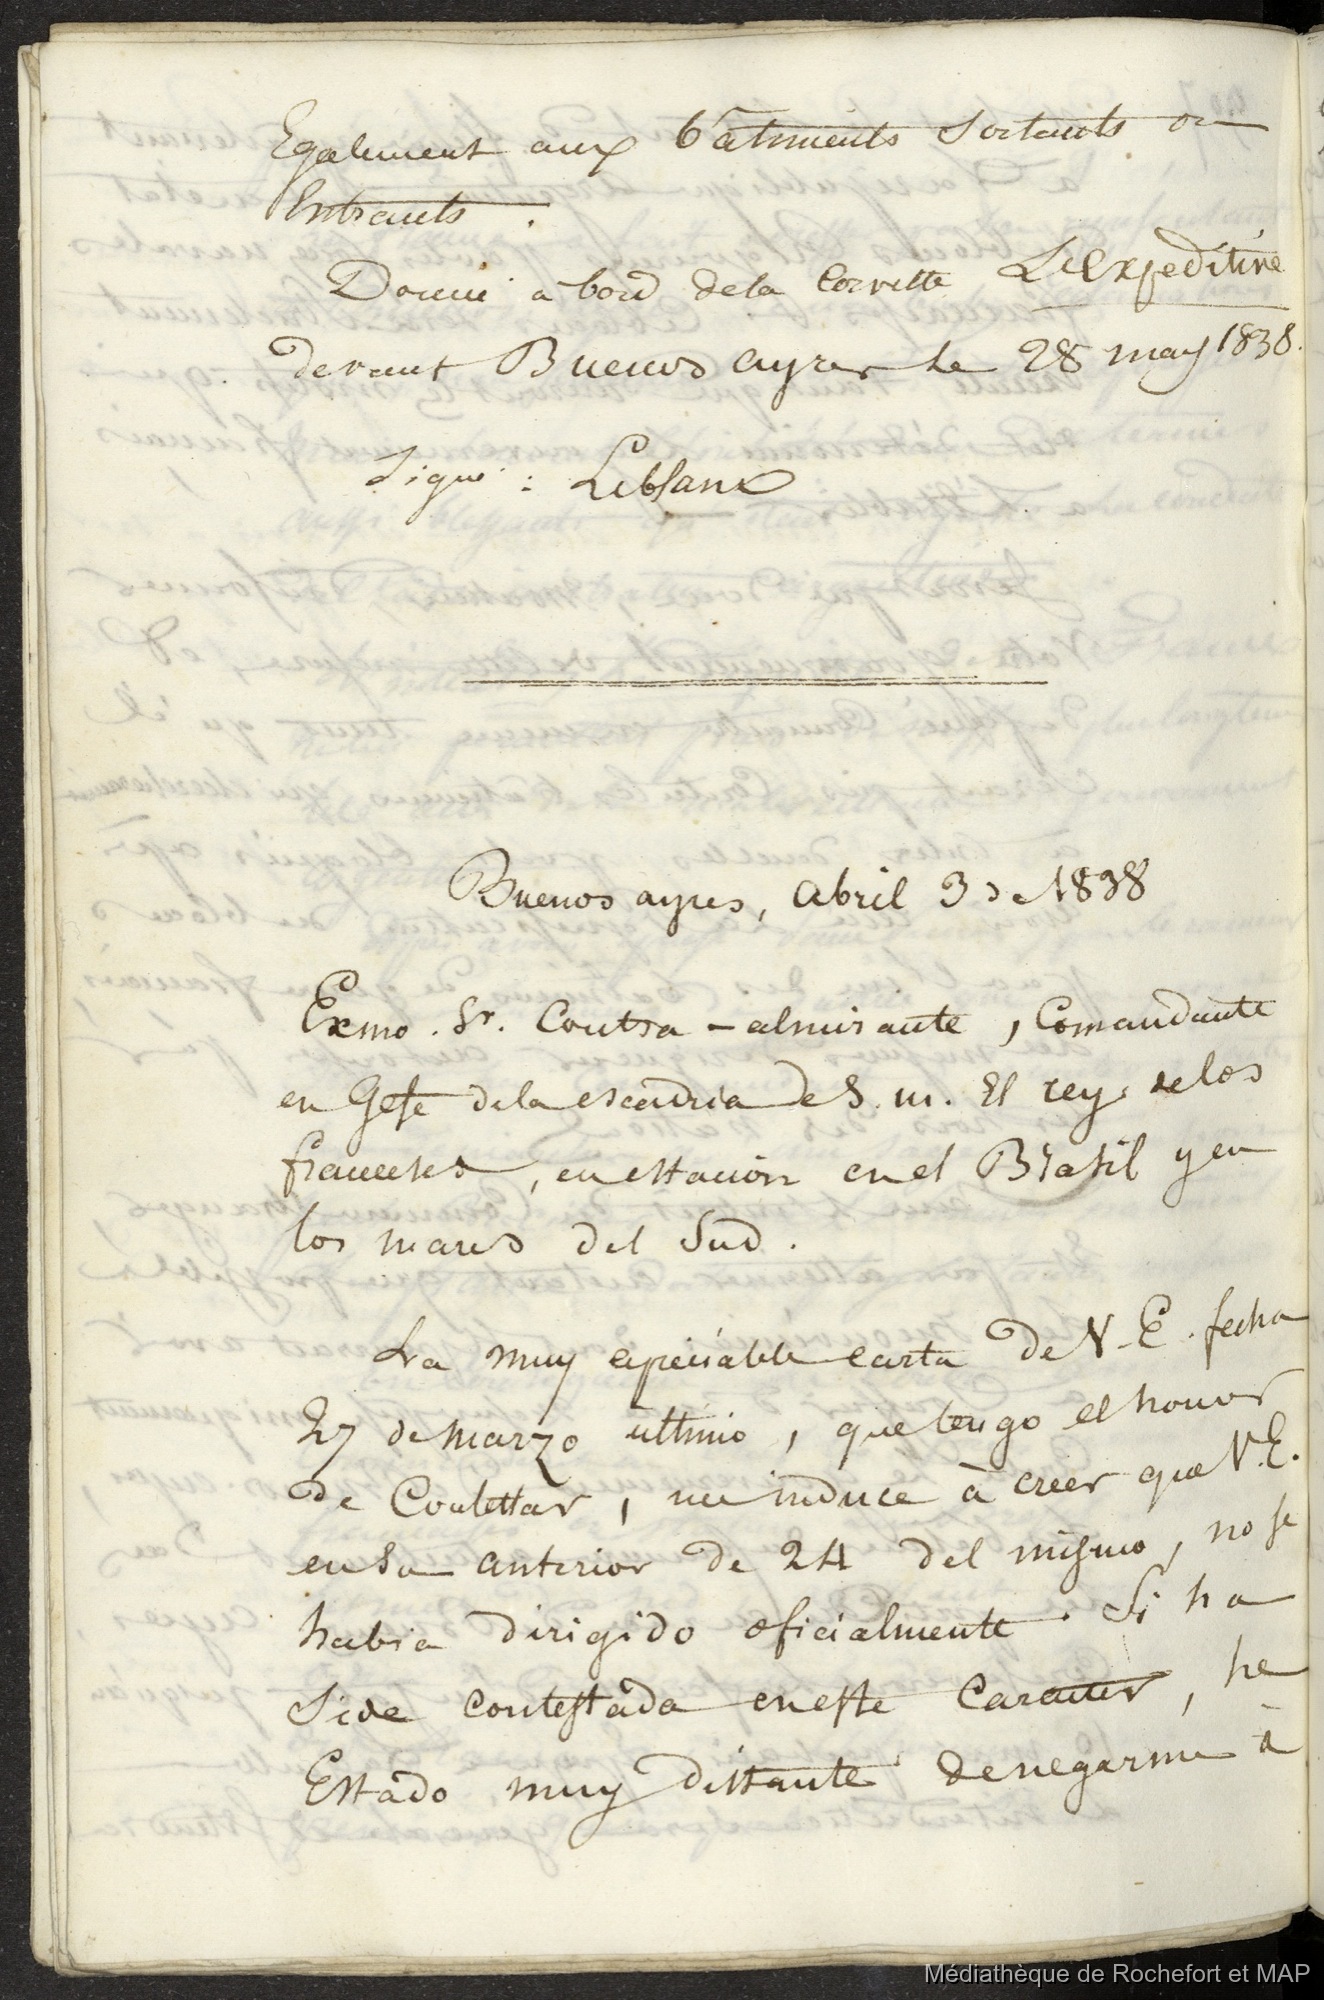 Egalement aux bâtiments sortants ou
Entrants.
Donné a bord dela corvette L'Expeditive
devant Buenos ayres le 28 may 1838.
Signé : Leblanc
Buenos ayres, abril 3 de 1838
Exmo. Sr. Contra-almirante, Comandante
en Gefe dela escadria de S. M. El rey delos
franceses, en estacion en el Brasil y en
los mares del Sud.
La muy apreciable carta de V. E. fecha
27 de marzo ultimo, que tengo el honor
de Contestar, me induce à creer que V. E.
en su anterior de 24 del mismo, no se
habia dirigido oficialmente. Si ha
Sido contestada en este Caracter, he
Estado muy distante de negarme à
Médiathèque de Rochefort et MAP